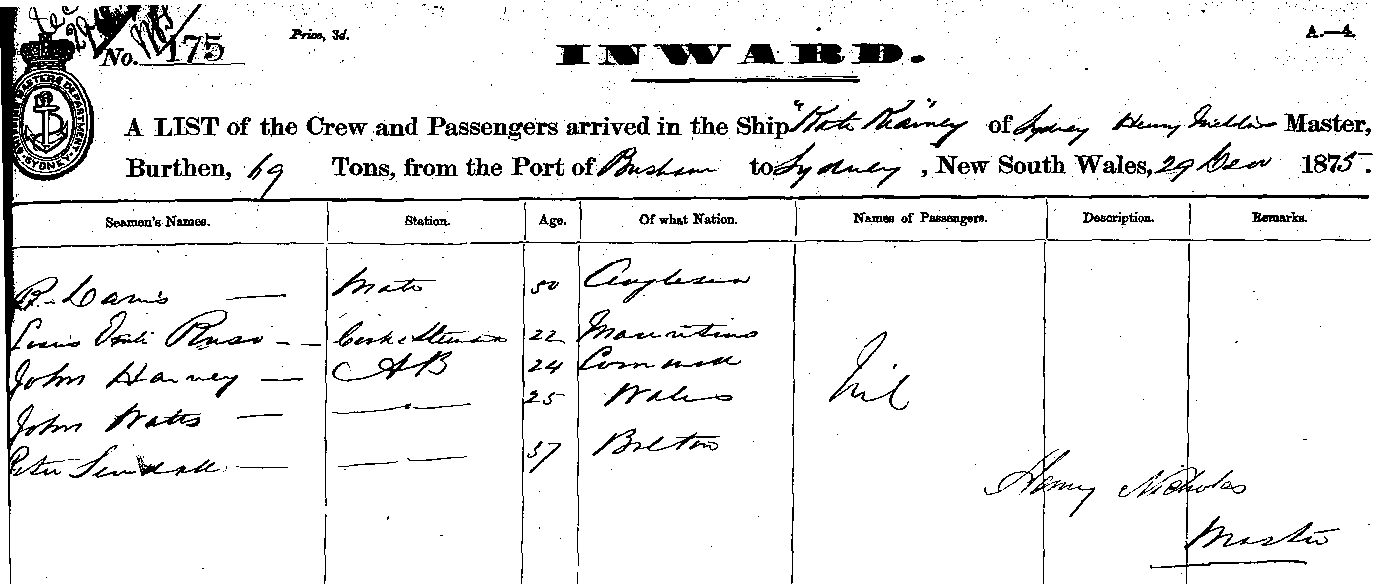 No. 175
Price, 3d.
A.—4.
INWARD.
A LIST of the Crew and Passengers arrived in the Ship "Kate Kearney of Sydney Henry Master,
Burthen, 69 Tons, from the Port of to Sydney, New South Wales, 29 Decr 1875.
Seamen's Names. Station. Age. Of what Nation. Names of Passengers. Description. Remarks.
R. Davis — Mate 50 Anglesea
Louis Russo — Cook & Steward 22 Mauritius
John Harvey — AB 24 Cornwall
John Watts — — 25 Wales
Peter — — 37 Bolton
Nil
Henry Nicholas
Master